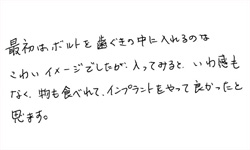 最初は、ボルトを歯ぐきの中に入れるのは
こわいイメージでしたが、入ってみると、いわ感も
なく、物も食べれて、インプラントをやって良かったと
思ます。